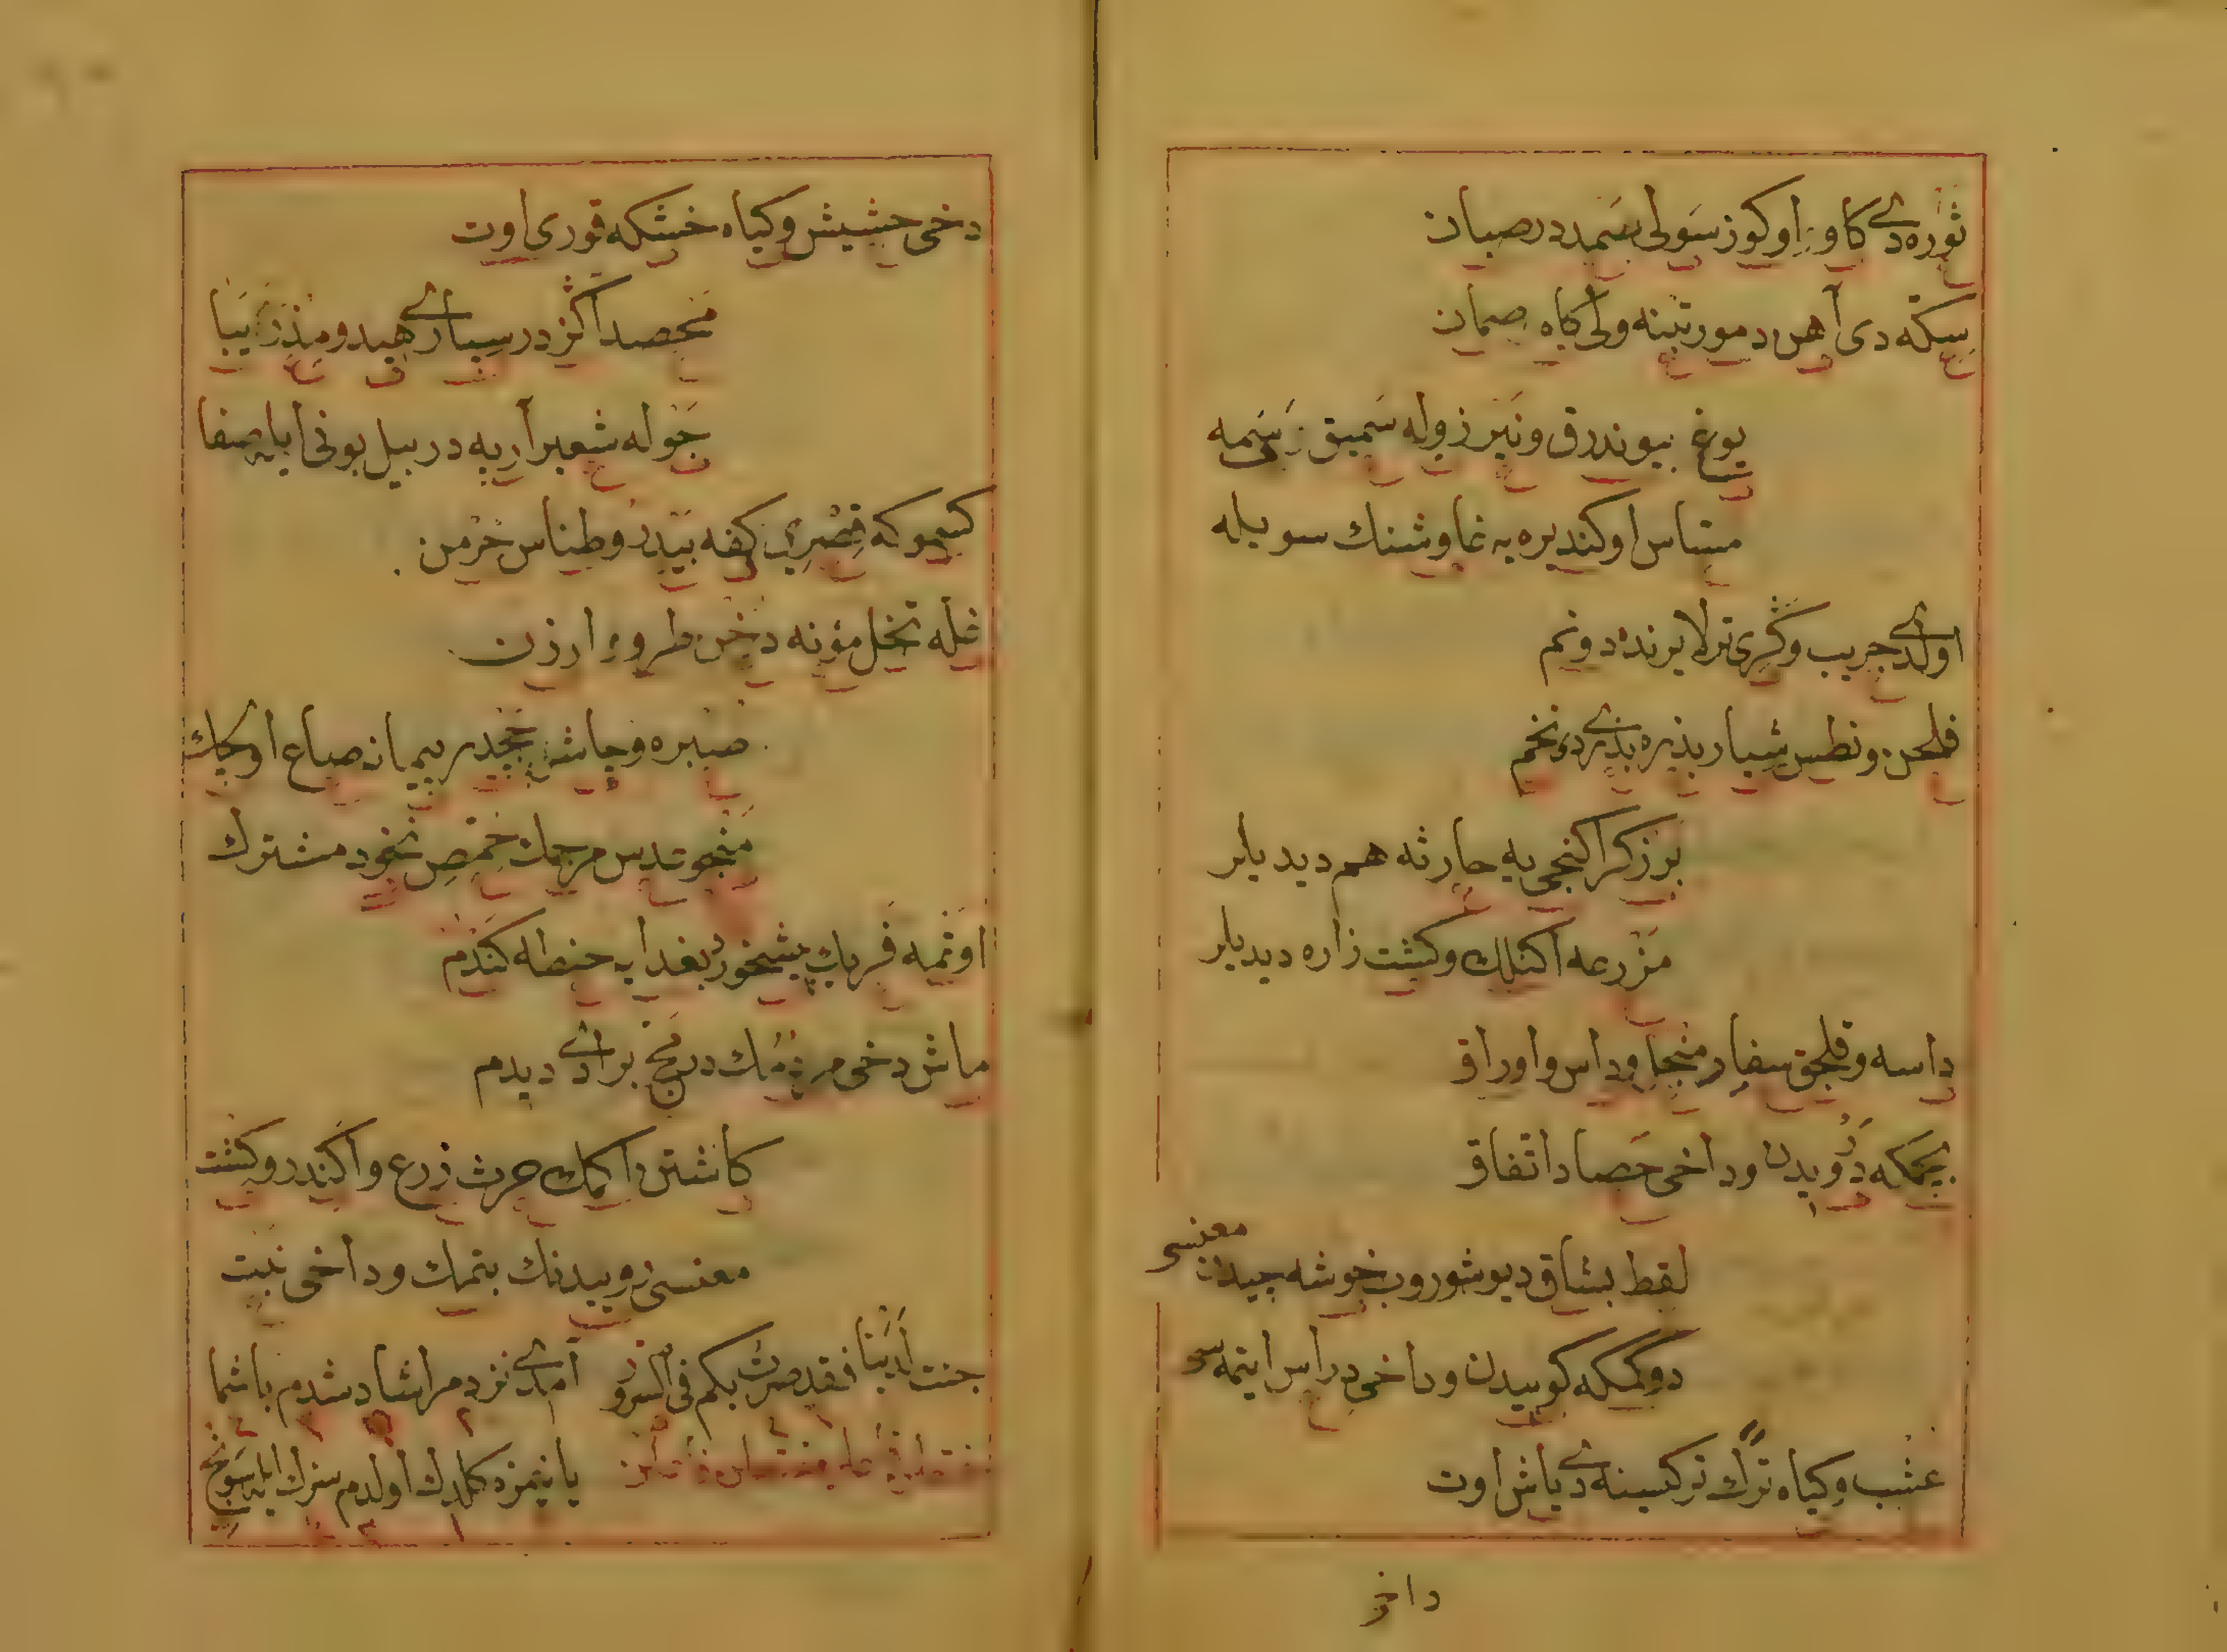 ثوره دی کاو اوکوز سولی سمدر صبان
سکه دی آهن دمور تینه ولی کاه صمان
بوغ بیوندرق ونیر زوله سمیق سمه
متاس اوکندیره یه غاوشنك سویله
اولدی جریب وکری ترلا یرنده دونم
فلحن ونطس شیار بذره بذری دی تخم
برزکر اکنجی یه حارثه هم دیدیلر
مزرعه اکنلك وکشت زاره دیدیلر
داسه وقلجق سفار منجل وداس واوراق
بیجمکه درویدن وداخی حصاد اتفاق
لقط بشاق دیوشوروب خوشه چیدن معنسی
دوکمکه کوبیدن وداخی دراس ایتمه سی
عشب وکیاه ترك ترکسینه دی یاش اوت
داخی
دخی حشیش وکیاه خشکه قوری اوت
محصد اکز در سپاری هید ومذر یبا
جوله شعیر آرپه در بیل بونی ایله صفا
کسموکه قصری کفه بیدر وطناس خرمن
غله تخل مؤنه دخن طرو ارزن
صبره وچاش پیمانه صاع اوجلك
منجو عدس مرجمك حمص نخود مشترك
اوتمه فریك بشخور بغدایه حنطه کندم
ماش دخی مرجمك درنج برادی دیدم
کاشتن اکمك حرث زرع واکندر وکشت
معنسی روییدنك بتمك وداخی نبت
جئت لدینا فقد صرت بکم فی السرو آمدی نزدم مراشاد شدم باشما
یانمزه کلدك اولدم سزك ایله سونج